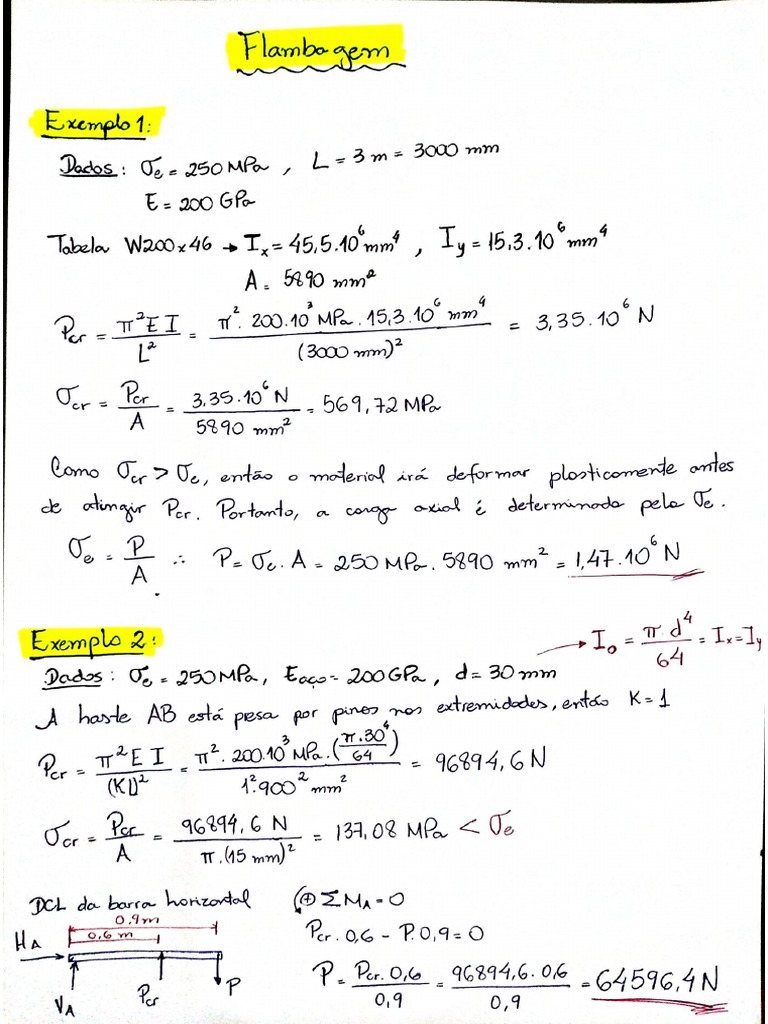 Flambagem
Exemplo 1:
Dados: σe = 250 MPa, L = 3 m = 3000 mm
E = 200 GPa
Tabela W200x46 → Ix = 45,5.10⁶ mm⁴, Iy = 15,3.10⁶ mm⁴
A = 5890 mm²
Pcr = π² E I / L² = π². 200.10³ MPa. 15,3.10⁶ mm⁴ / (3000 mm)² = 3,35.10⁶ N
σcr = Pcr / A = 3,35.10⁶ N / 5890 mm² = 569,72 MPa
Como σcr > σe, então o material irá deformar plasticamente antes
de atingir Pcr. Portanto, a carga axial é determinada pela σe.
σe = P / A ∴ P = σe. A = 250 MPa. 5890 mm² = 1,47.10⁶ N
Exemplo 2:
→ Io = π.d⁴ / 64 = Ix = Iy
Dados: σe = 250 MPa, Eaço = 200 GPa, d = 30 mm
A haste AB está presa por pinos nos extremidades, então K = 1
Pcr = π² E I / (KL)² = π². 200.10³ MPa. (π.30⁴ / 64) / 1².900² mm² = 96894,6 N
σcr = Pcr / A = 96894,6 N / π.(15 mm)² = 137,08 MPa < σe
DCL da barra horizontal
0,9 m
0,6 m
HA
VA
Pcr
P
(+ Σ MA = 0
Pcr. 0,6 - P. 0,9 = 0
P = Pcr. 0,6 / 0,9 = 96894,6. 0,6 / 0,9 = 64596,4 N